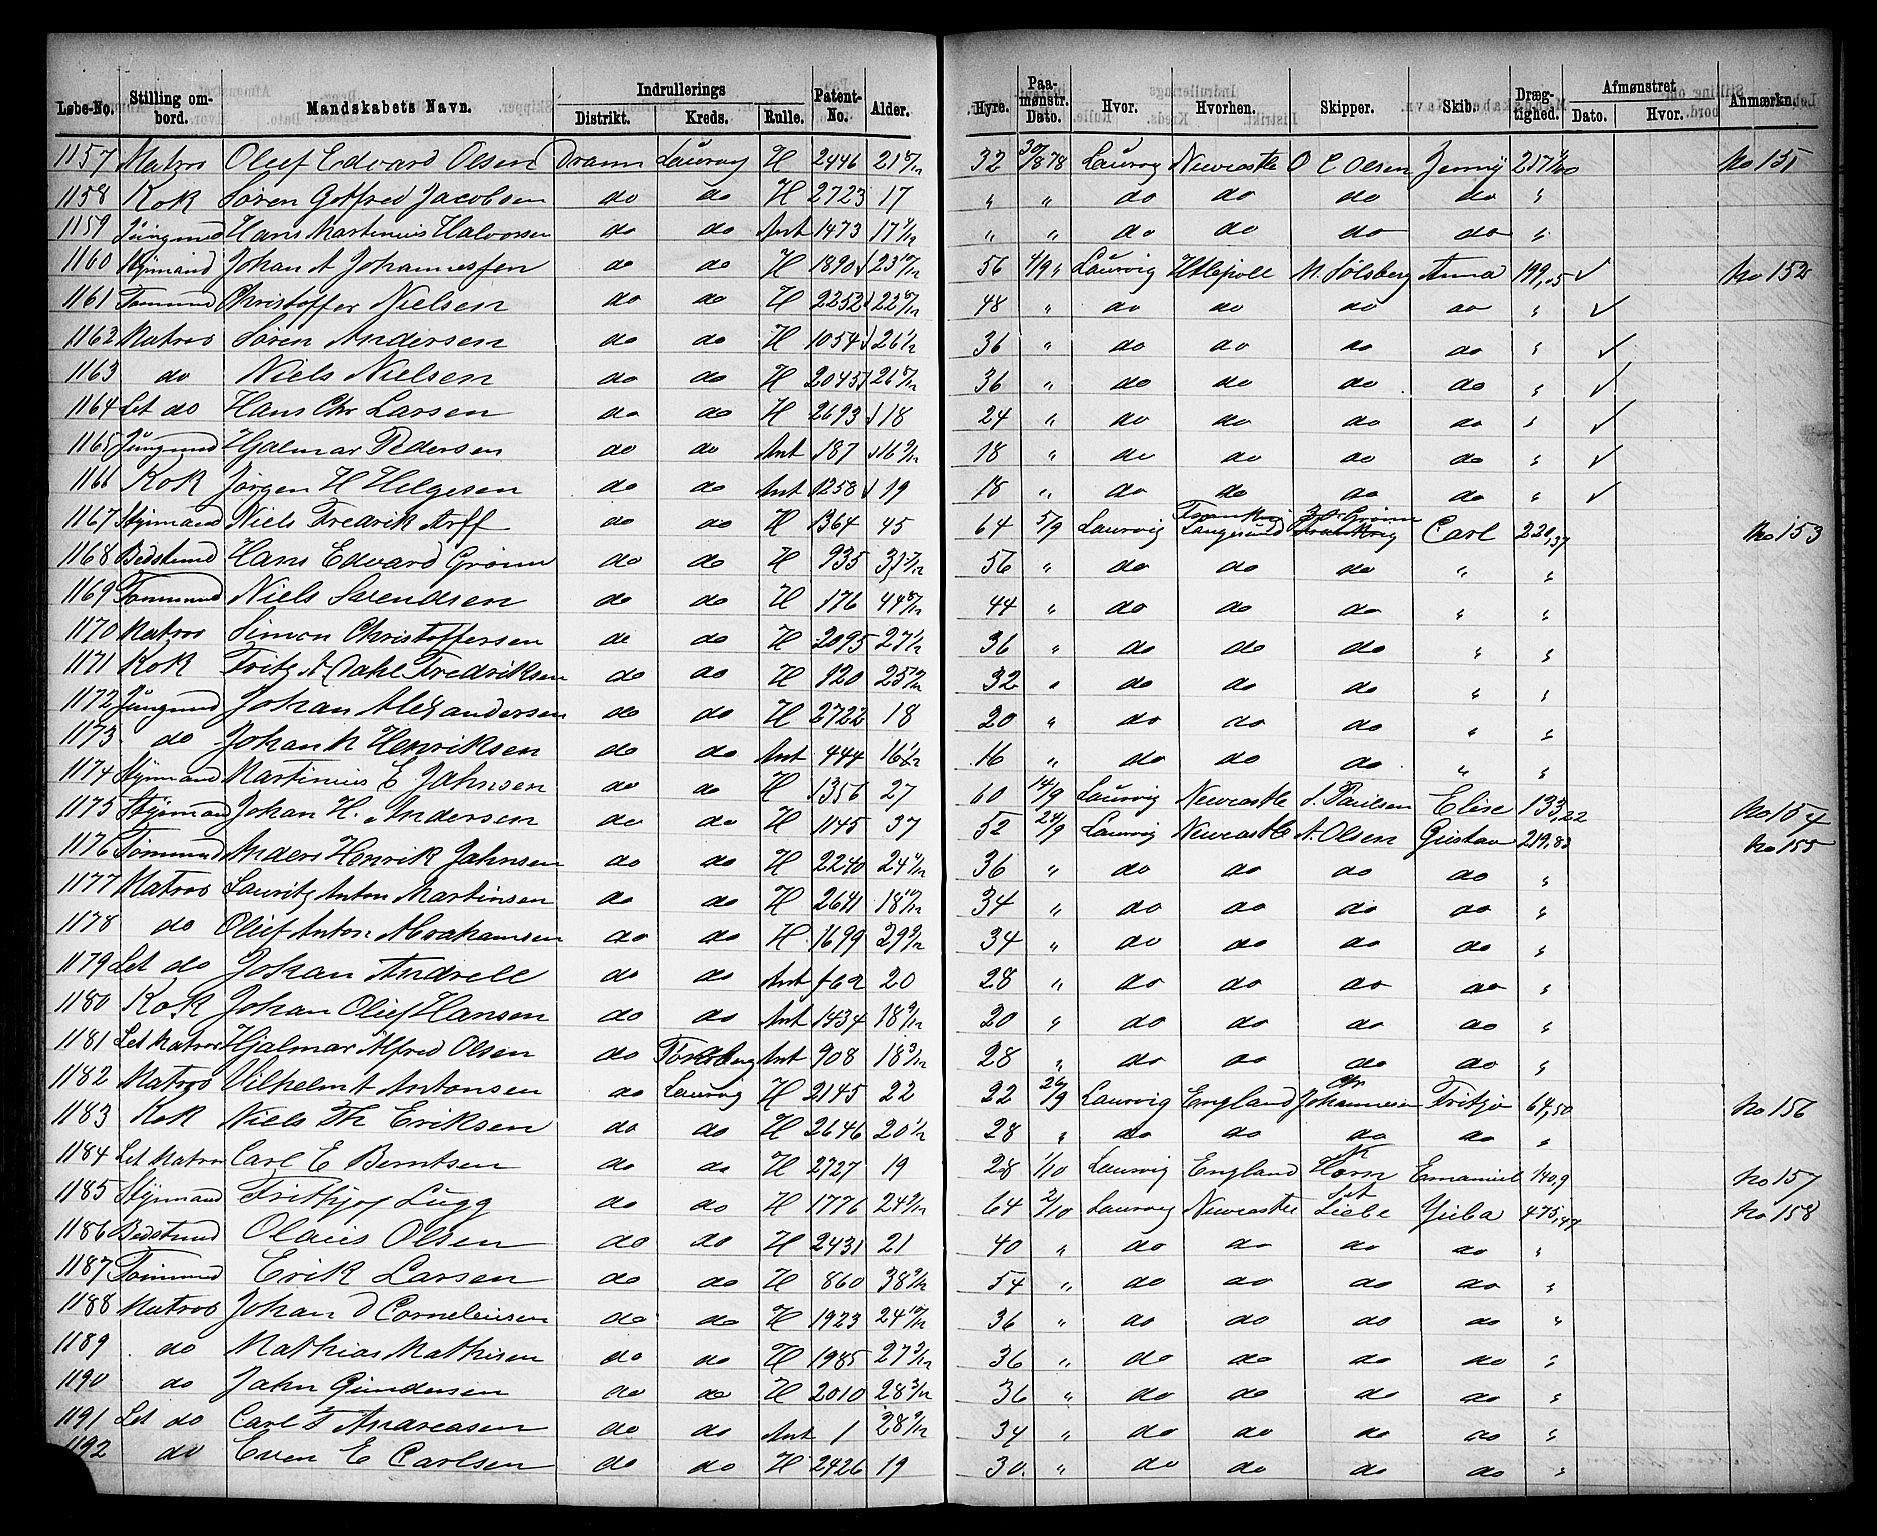 Løbe-No. Stilling ombord. Mandskabets Navn. Indrullerings Distrikt. Kreds. Rulle. Patent-No. Alder. Hyre. Paamønstr. Dato. Hvor. Hvorhen. Skipper. Skib. Drægtighed. Afmønstret Dato. Hvor. Anmærkn.
1157 Matros Oluf Edvard Olsen Dram Laurvig H 2446 21 32 30/8 78 Laurvig Newcastle O C Olsen Jenny No 151
1158 Kok Søren Gotfred Jacobsen do do H 2723 17 " " do do do do "
1159 Jungmd Hans Martinius Halvorsen do do Ant 1473 17 " " do do do do "
1160 Styrmand Johan A Johannesen do do H 1890 ✓ 23 56 4/9 " Laurvig Htlepoll M. Sølsberg Anna 199,05 ✓ No 152
1161 Tømmd Christoffer Nielsen do do H 2252 ✓ 22 48 " do do do do " ✓
1162 Matros Søren Andersen do do H 1054 ✓ 26 1/2 36 " do do do do " ✓
1163 do Niels Nielsen do do H 2045 ✓ 26 36 " do do do do " ✓
1164 Let do Hans Chr Larsen do do H 2693 ✓ 18 24 " do do do do " ✓
1165 Jungmd Hjalmar Pedersen do do Ant 187 ✓ 16 18 " do do do do " ✓
1166 Kok Jørgen H Helgesen do do Ant 1258 ✓ 19 18 " do do do do " ✓
1167 Styrmand Niels Fredrik Arff do do H 1364 45 64 5/9 Laurvig Langesund Carl 220,37 No 153
1168 Bedstmd Hans Edvard Grønn do do H 935 56 " do do do " "
1169 Tømmd Niels Svendsen do do H 176 44 44 " do do do " "
1170 Matros Simon Christoffersen do do H 2095 27 1/2 36 " do do do " "
1171 Kok Fritz A Dahl Fredriksen do do H 120 25 32 " do do do " "
1172 Jungmd Johan Alexandersen do do H 2722 18 20 " do do do " "
1173 do Johan N Henriksen do do Ant 444 16 1/2 16 " do do do " "
1174 Styrmand Martinius E Jahnsen do do H 1356 27 60 14/9 Laurvig Newcastle S. Paulsen Elise 133,22 No 154
1175 Styrmand Johan H. Andersen do do H 1145 37 52 24/9 Laurvig Newcastle A. Olsen Gustav 219,83 No 155
1176 Tømmd Anders Henrik Jahnsen do do H 2240 24 36 " do do do do "
1177 Matros Lauritz Anton Martinsen do do H 2641 18 34 " do do do do "
1178 do Oluf Anton Abrahamsen do do H 1699 29 34 " do do do do "
1179 Let do Johan Andrell do do Ant 20 28 " do do do do "
1180 Kok Johan Oluf Hansen do do Ant 1434 18 20 " do do do do "
1181 Let Matros Hjalmar Alfred Olsen do Tønsberg Ant 908 18 3/12 28 " do do do do "
1182 Matros Vilhelm A Antonsen do Laurvig H 2145 22 22 26/9 Laurvig England Chr Johannesen Fritjo 64,50 No 156
1183 Kok Niels Th Eriksen do do H 2646 20 1/2 28 " do do do do "
1184 Let Matros Carl E Berntsen do do H 2727 19 28 1/10 Laurvig England N Horn Emanuel 140,9 No 157
1185 Styrmand Frithjof Lugg do do H 1776 24 64 2/10 Laurvig Newcastle Liebe Yuba 475,47 No 158
1186 Bedstmd Olaus Olsen do do H 2431 21 40 " do do do do "
1187 Tømmd Erik Larsen do do H 860 38 54 " do do do do "
1188 Matros Johan D Corneliusen do do H 1923 24 10/12 36 " do do do do "
1189 do Mathias Mathisen do do H 1985 27 36 " do do do do "
1190 do Jahn Gundersen do do H 2010 28 3/12 36 " do do do do "
1191 Let do Carl T Andreasen do do Ant 1 28 34 " do do do do "
1192 do Even E Carlsen do do H 2426 19 30 " do do do do "